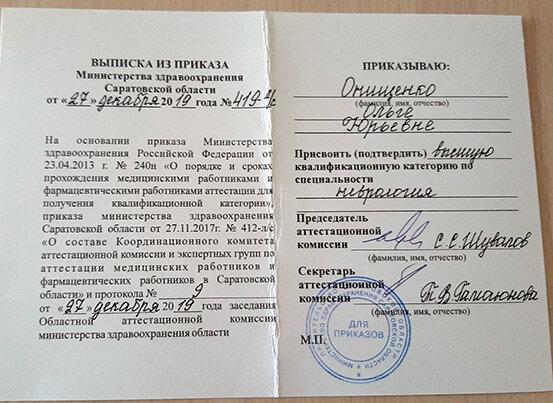 ВЫПИСКА ИЗ ПРИКАЗА
Министерства здравоохранения
Саратовской области
от «27» декабря 2019 года № 419-л/с
На основании приказа Министерства
здравоохранения Российской Федерации от
23.04.2013 г. № 240н «О порядке и сроках
прохождения медицинскими работниками и
фармацевтическими работниками аттестации для
получения квалификационной категории»,
приказа министерства здравоохранения
Саратовской области от 27.11.2017г. № 412-л/с
«О составе Координационного комитета
аттестационной комиссии и экспертных групп по
аттестации медицинских работников и
фармацевтических работников в Саратовской
области» и протокола № 9
от «27» декабря 2019 года заседания
Областной аттестационной комиссии
министерства здравоохранения области
ПРИКАЗЫВАЮ:
Онищенко
(фамилия, имя, отчество)
Ольге
Юрьевне
Присвоить (подтвердить) высшую
квалификационную категорию по
специальности
неврология
Председатель
аттестационной
комиссии С.С.Шувалов
(фамилия, имя, отчество)
Секретарь
аттестационной
комиссии Т.В.Гамаюнова
(фамилия, имя, отчество)
М.П.
ДЛЯ
ПРИКАЗОВ